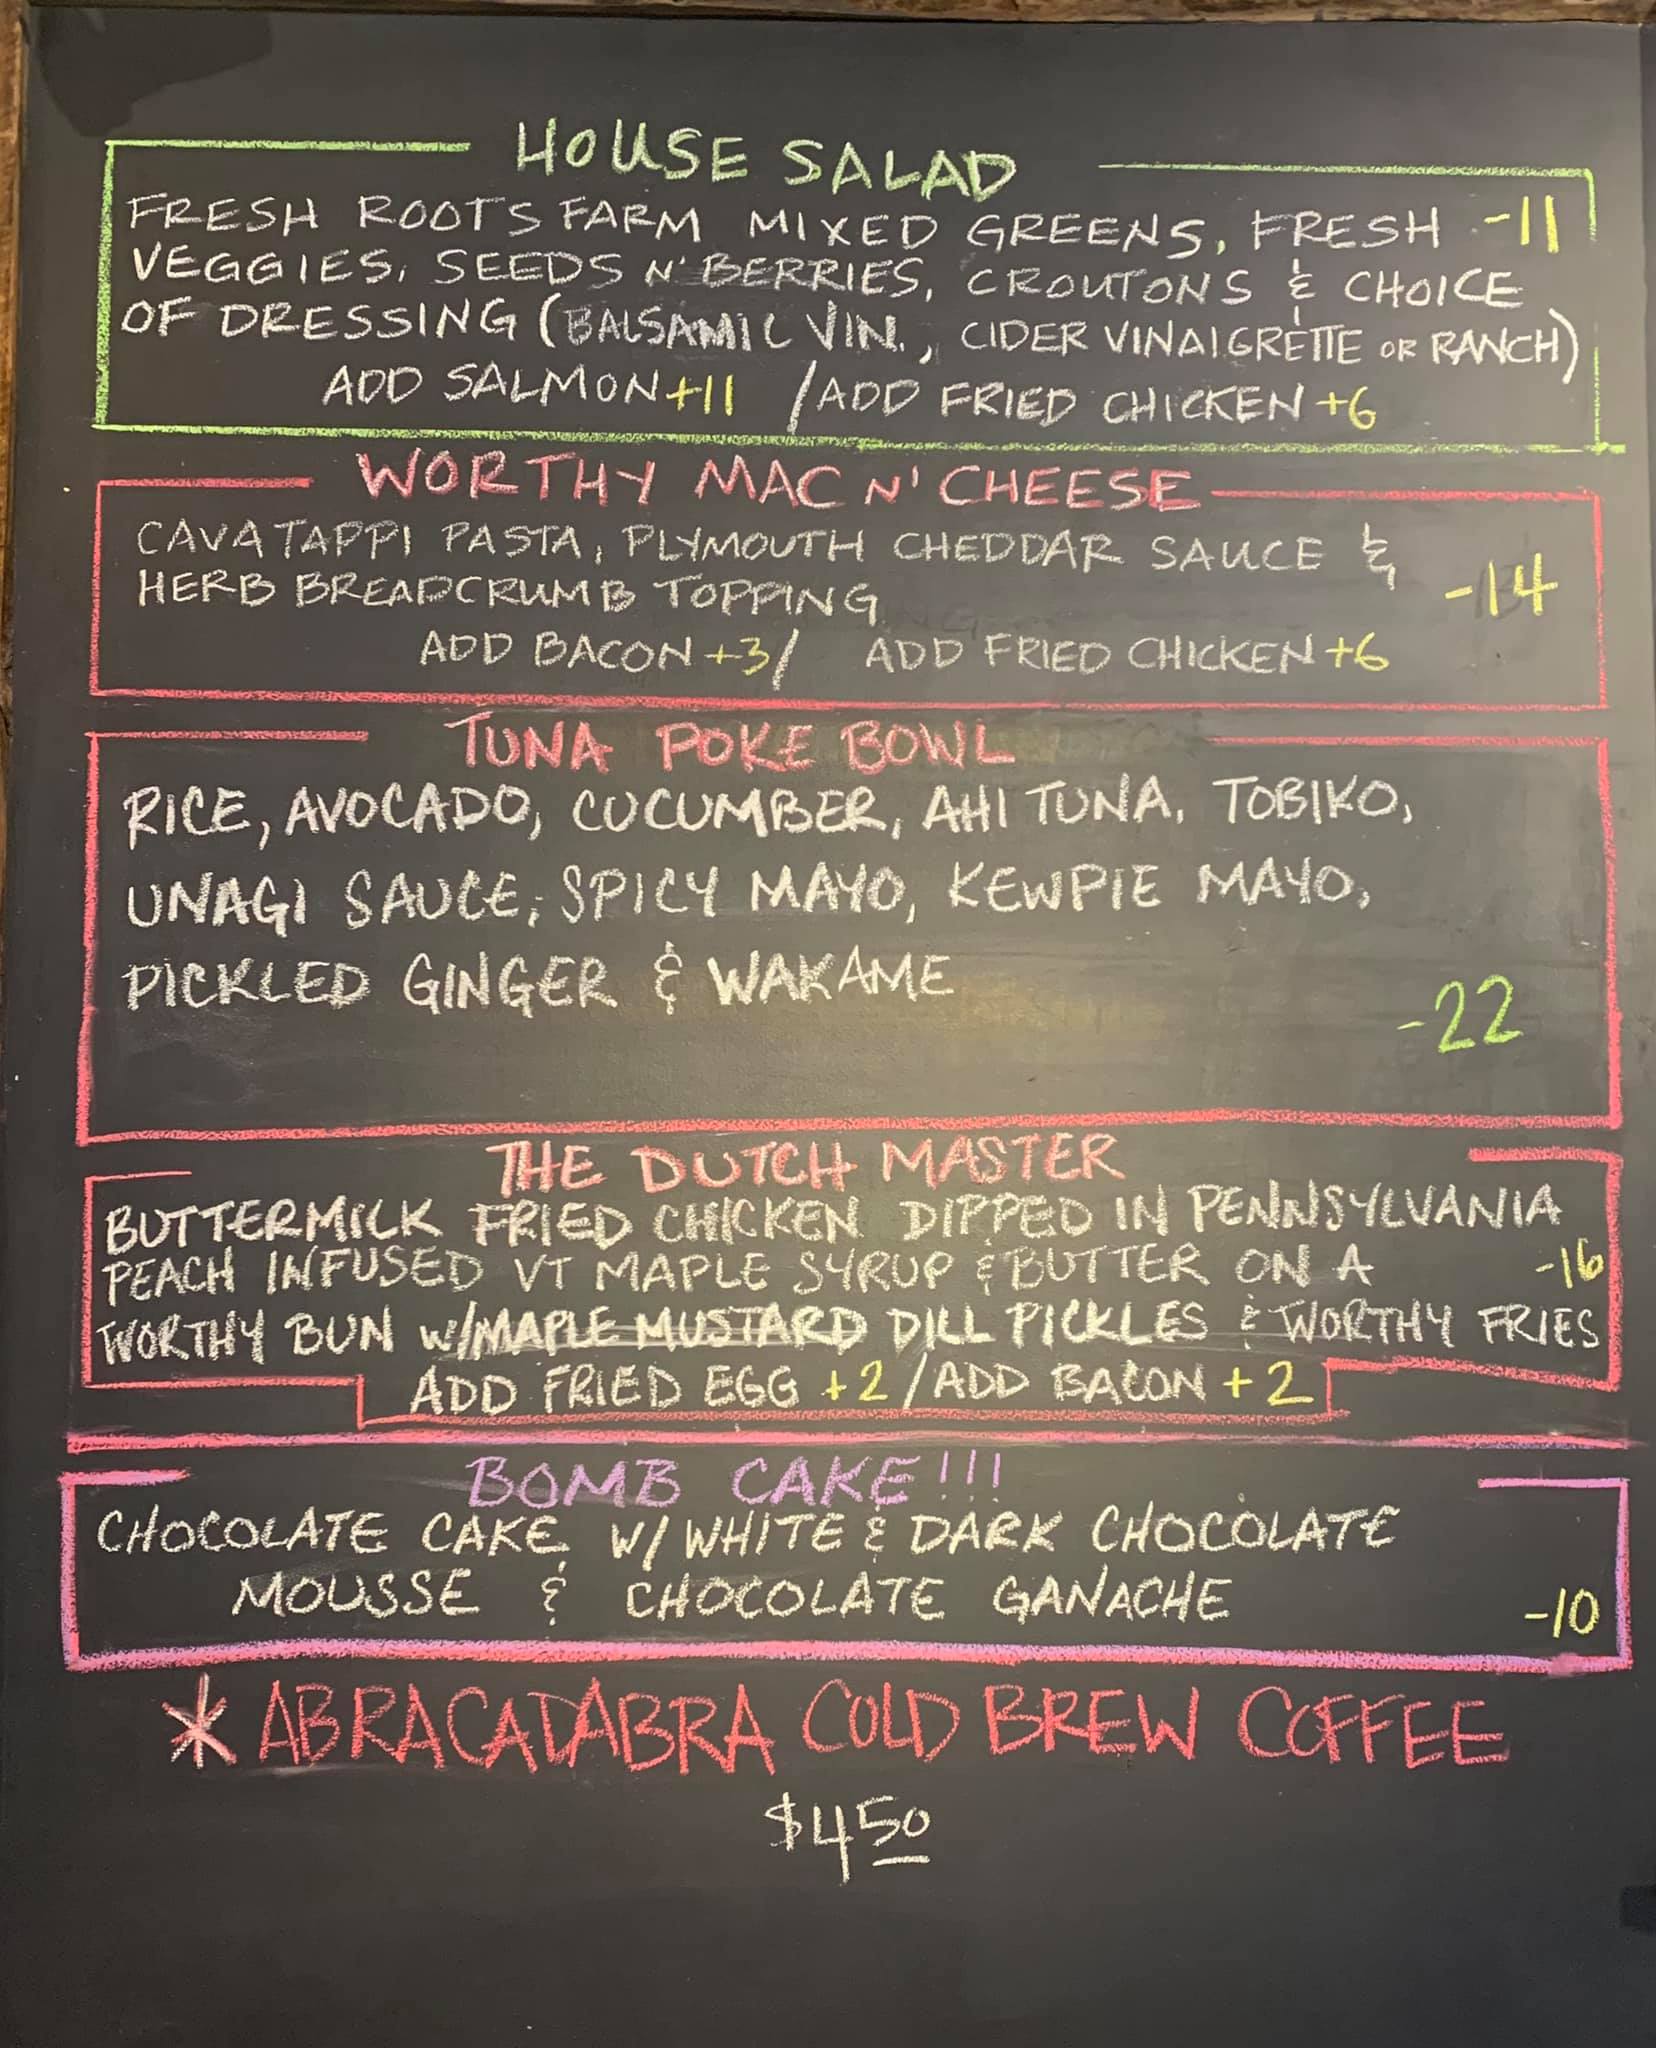 HOUSE SALAD
FRESH ROOTS FARM MIXED GREENS, FRESH -11
VEGGIES, SEEDS N' BERRIES, CROUTONS & CHOICE
OF DRESSING (BALSAMIC VIN., CIDER VINAIGRETTE OR RANCH)
ADD SALMON +11 / ADD FRIED CHICKEN +6
WORTHY MAC N' CHEESE
CAVATAPPI PASTA, PLYMOUTH CHEDDAR SAUCE &
HERB BREADCRUMB TOPPING -14
ADD BACON +3 / ADD FRIED CHICKEN +6
TUNA POKE BOWL
RICE, AVOCADO, CUCUMBER, AHI TUNA, TOBIKO,
UNAGI SAUCE, SPICY MAYO, KEWPIE MAYO,
PICKLED GINGER & WAKAME
-22
THE DUTCH MASTER
BUTTERMILK FRIED CHICKEN DIPPED IN PENNSYLVANIA
PEACH INFUSED VT MAPLE SYRUP & BUTTER ON A -16
WORTHY BUN W/MAPLE MUSTARD DILL PICKLES & WORTHY FRIES
ADD FRIED EGG +2 / ADD BACON +2
BOMB CAKE!!!
CHOCOLATE CAKE W/ WHITE & DARK CHOCOLATE
MOUSSE & CHOCOLATE GANACHE -10
* ABRACADABRA COLD BREW COFFEE
$4 50